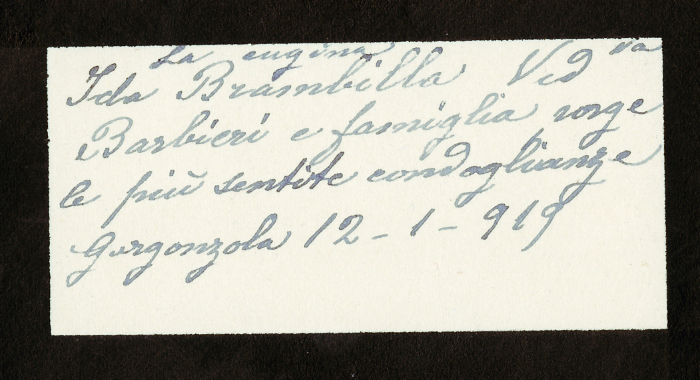 La cugina
Ida Brambilla Ved va
Barbieri e famiglia porge
le più sentite condoglianze
Gorgonzola 12-1-919